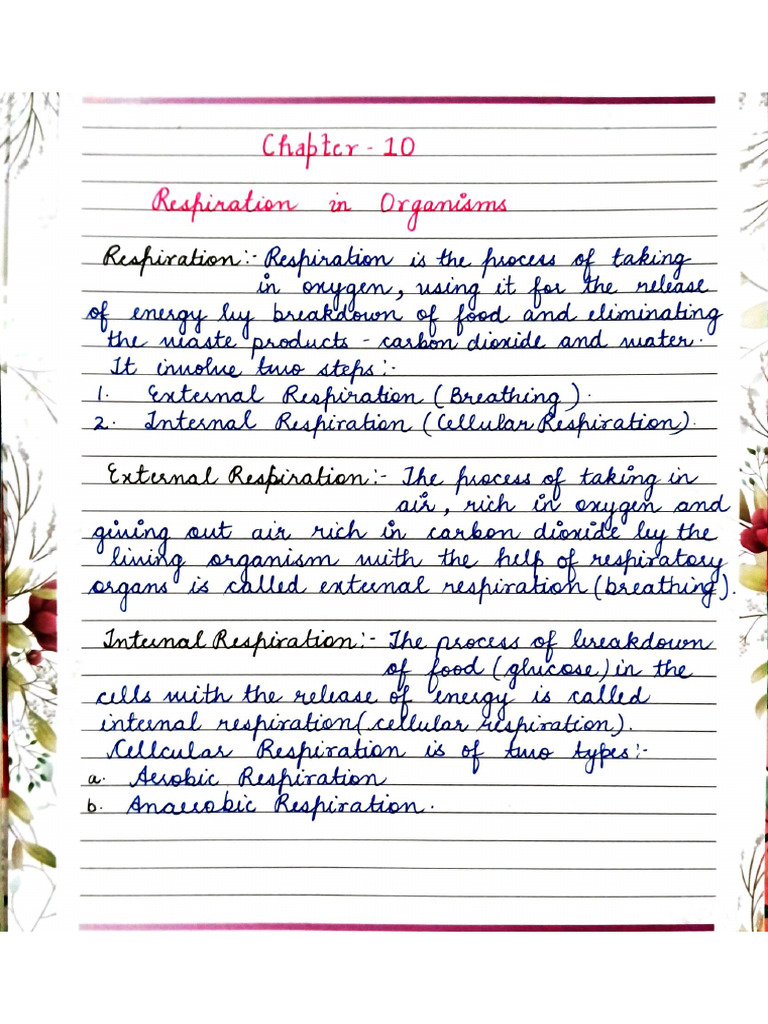 Chapter - 10
Respiration in Organisms
Respiration :- Respiration is the process of taking
in oxygen, using it for the release
of energy by breakdown of food and eliminating
the waste products - carbon dioxide and water.
It involve two steps :-
1. External Respiration ( Breathing ).
2. Internal Respiration ( Cellular Respiration ).
External Respiration :- The process of taking in
air, rich in oxygen and
giving out air rich in carbon dioxide by the
living organism with the help of respiratory
organs is called external respiration (breathing).
Internal Respiration :- The process of breakdown
of food (glucose) in the
cells with the release of energy is called
internal respiration (cellular respiration).
Cellcular Respiration is of two types :-
a. Aerobic Respiration
b. Anaerobic Respiration.